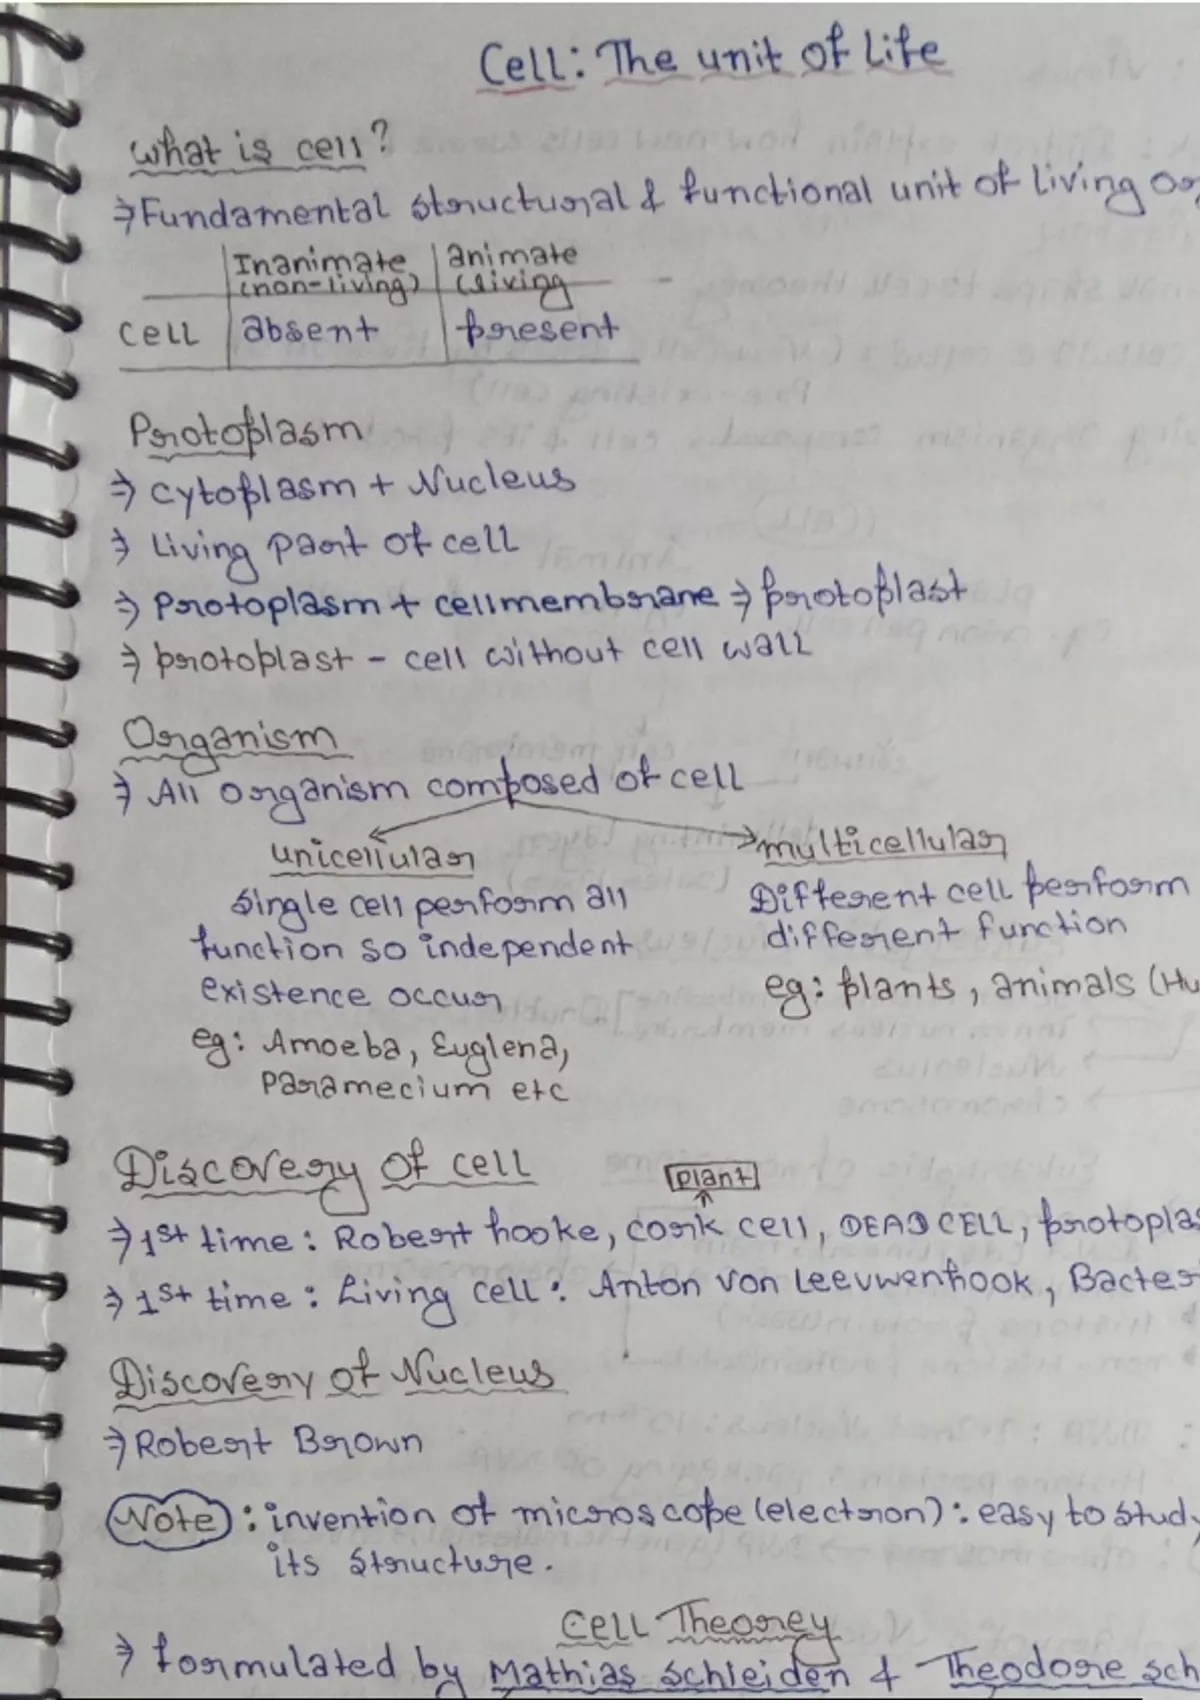 Cell: The unit of Life
what is cell?
⇒ Fundamental structural & functional unit of living or
Inanimate animate
(non-living) (living
Cell absent present
Protoplasm
⇒ cytoplasm + Nucleus
⇒ Living part of cell
⇒ Protoplasm + cellmembrane ⇒ protoplast
⇒ protoplast - cell without cell wall
Organism
⇒ All organism composed of cell
unicellular multicellular
single cell perform all Different cell perform
function so independent different function
existence occur eg: plants, animals (Hu
eg: Amoeba, Euglena,
Paramecium etc
Discovery of cell plant
⇒ 1st time: Robert hooke, cork cell, DEAD CELL, protopla
⇒ 1st time: Living cell: Anton Von Leeuwenhook, Bacter
Discovery of Nucleus
⇒ Robert Brown
Note: invention of microscope (electron): easy to study
its structure.
Cell Theorey
⇒ formulated by Mathias Schleiden & Theodore sch